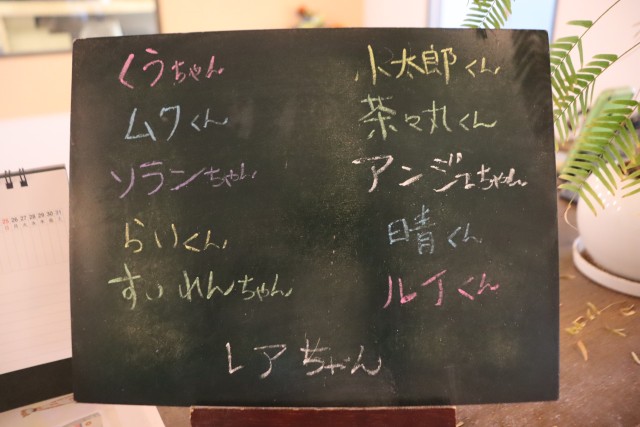 くうちゃん
ムクくん
ソランちゃん
らいくん
すいれんちゃん
小太郎くん
茶々丸くん
アンジュちゃん
日青くん
ルイくん
レアちゃん
25 26 27 28 29 30 31